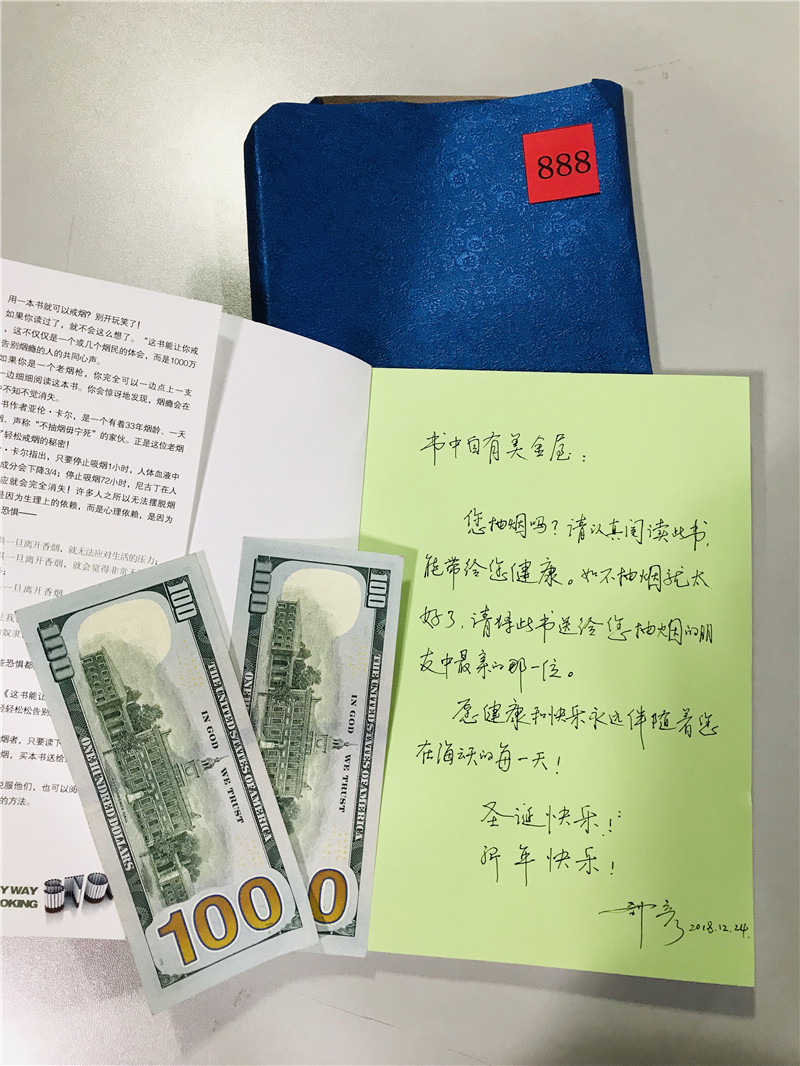 888
用一本书就可以戒烟?别开玩笑了!
如果你读过了,就不会这么想了。“这书能让你戒
,这不仅仅是一个或几个烟民的体会,而是1000万
告别烟瘾的人的共同心声。
如果你是一个老烟枪,你完全可以一边点上一支
一边细细阅读这本书。你会惊讶地发现,烟瘾会在
不知不觉消失。
书作者亚伦·卡尔,是一个有着33年烟龄、一天
、声称“不抽烟毋宁死”的家伙。正是这位老烟
了轻松戒烟的秘密!
·卡尔指出,只要停止吸烟1小时,人体血液中
成分会下降3/4;停止吸烟72小时,尼古丁在人
应就会完全消失!许多人之所以无法摆脱烟
是因为生理上的依赖,而是心理依赖,是因为
恐惧——
一旦离开香烟,就无法应对生活的压力;
一旦离开香烟,就会觉得非常
一旦离开香烟
些恐惧都
《这书能让
轻轻松松告别
烟者,只要读下
烟,买本书送给
说服他们,也可以阅
的方法。
Y WAY
OKING
100
THE UNITED STATES OF AMERICA
IN GOD WE TRUST
ONE HUNDRED DOLLARS
100
100
100
THE UNITED STATES OF AMERICA
IN GOD WE TRUST
100
书中自有美金屋:
您抽烟吗?请认真阅读此书,
能带给您健康。如不抽烟就太
好了,请将此书送给您抽烟的朋
友中最亲的那一位。
愿健康和快乐永远伴随着您
在海天的每一天!
圣诞快乐!
新年快乐!
2018.12.24.